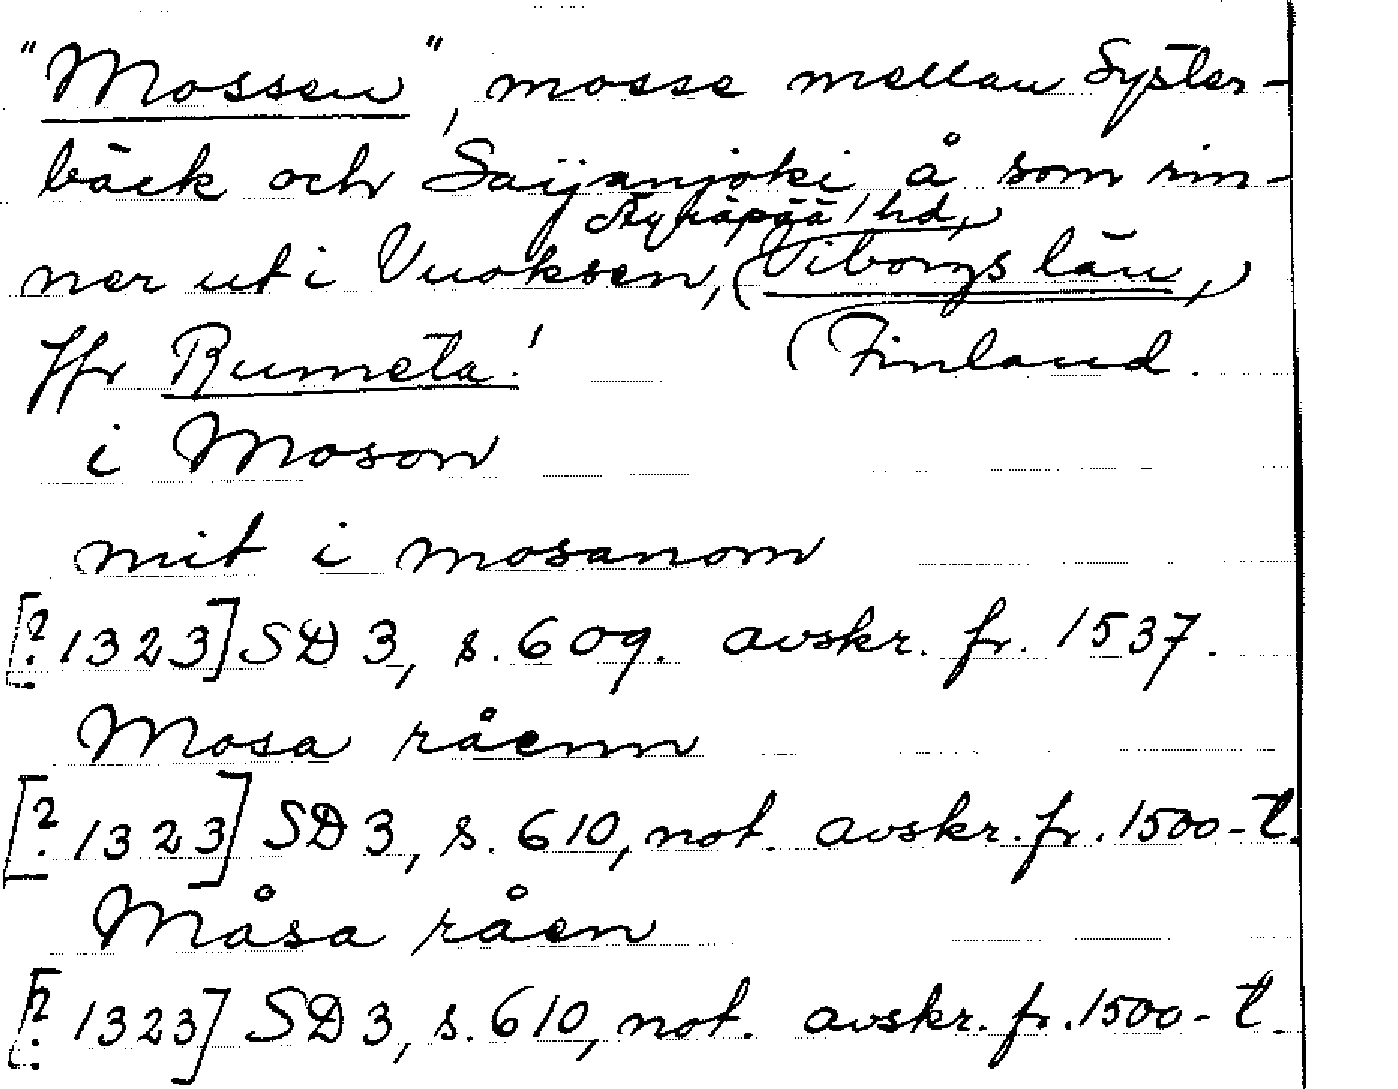 "Mossen", mosse mellan Syster-
bäck och Saijanjoki å som rin-
Äyräpää hd,
ner ut i Vuoksen, (Viborgs län,)
Jfr Rumeta! (Finland.
i Moson
mit i mosanom
[? 1323] SD 3, s. 609. avskr. fr. 1537.
Mosa råenn
[? 1323] SD 3, s. 610, not. avskr. fr. 1500-t.
Måsa råen
[? 1323] SD 3, s. 610, not. avskr. fr. 1500-t.